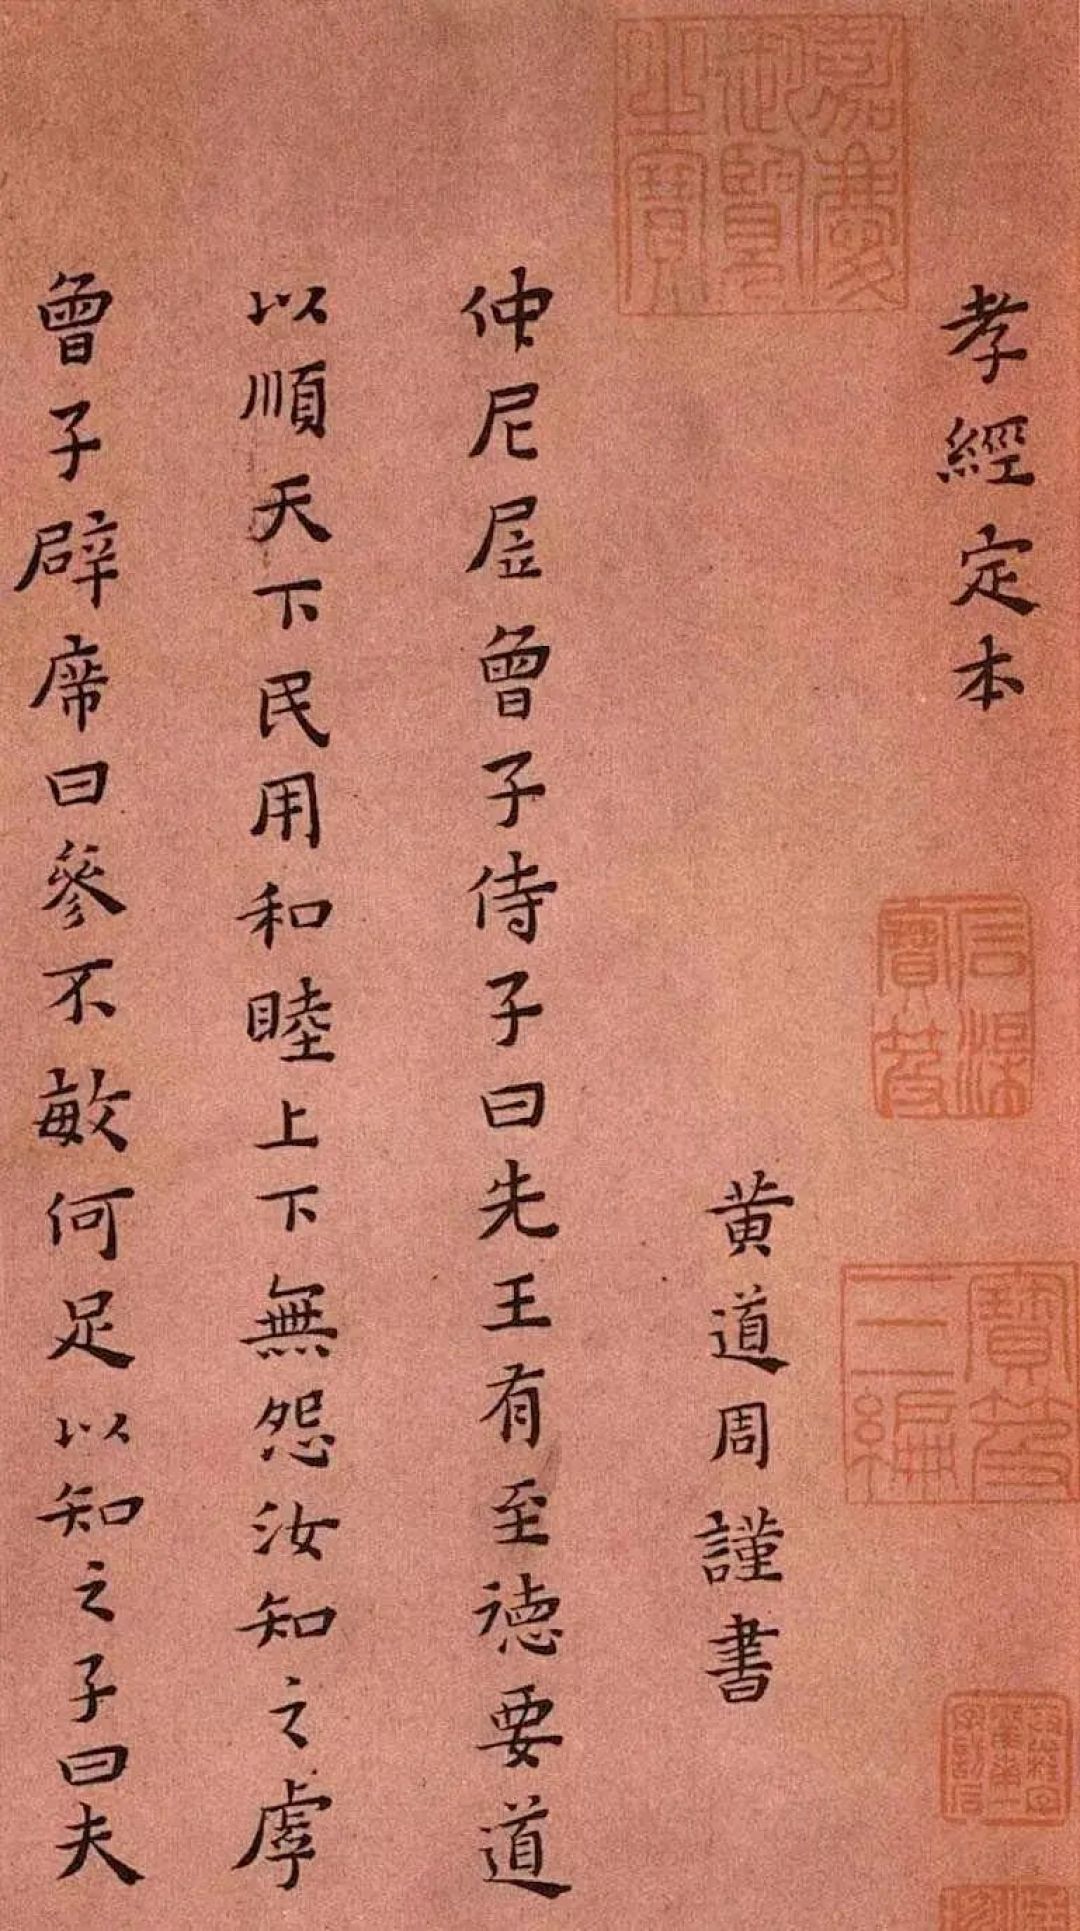 孝經定本
黄道周謹書
仲尼凥曾子侍子曰先王有至德要道
以順天下民用和睦上下無怨汝知之虖
曾子辟席曰參不敏何足以知之子曰夫
嘉慶御覽之寶
寶笈三編